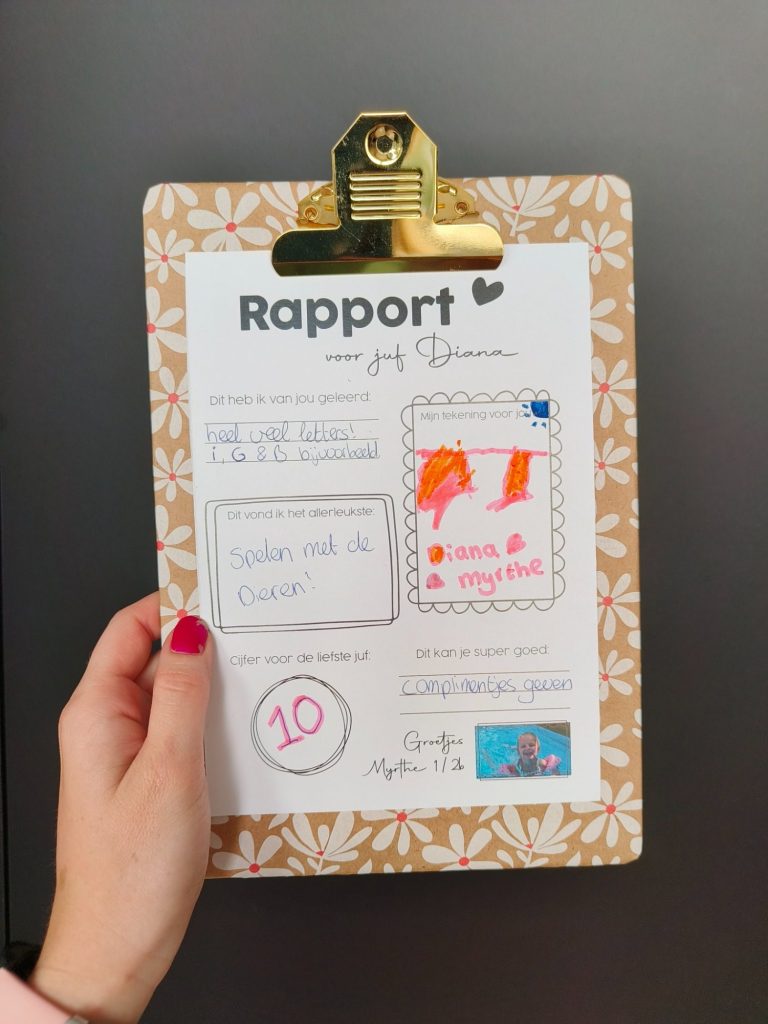 Rapport
voor juf Diana
Dit heb ik van jou geleerd:
heel veel letters!
i, G & B bijvoorbeeld
Mijn tekening voor jou:
Diana
myrthe
Dit vond ik het allerleukste:
Spelen met de
Dieren!
Cijfer voor de liefste juf:
10
Dit kan je super goed:
complimentjes geven
Groetjes
Myrthe 1/2b